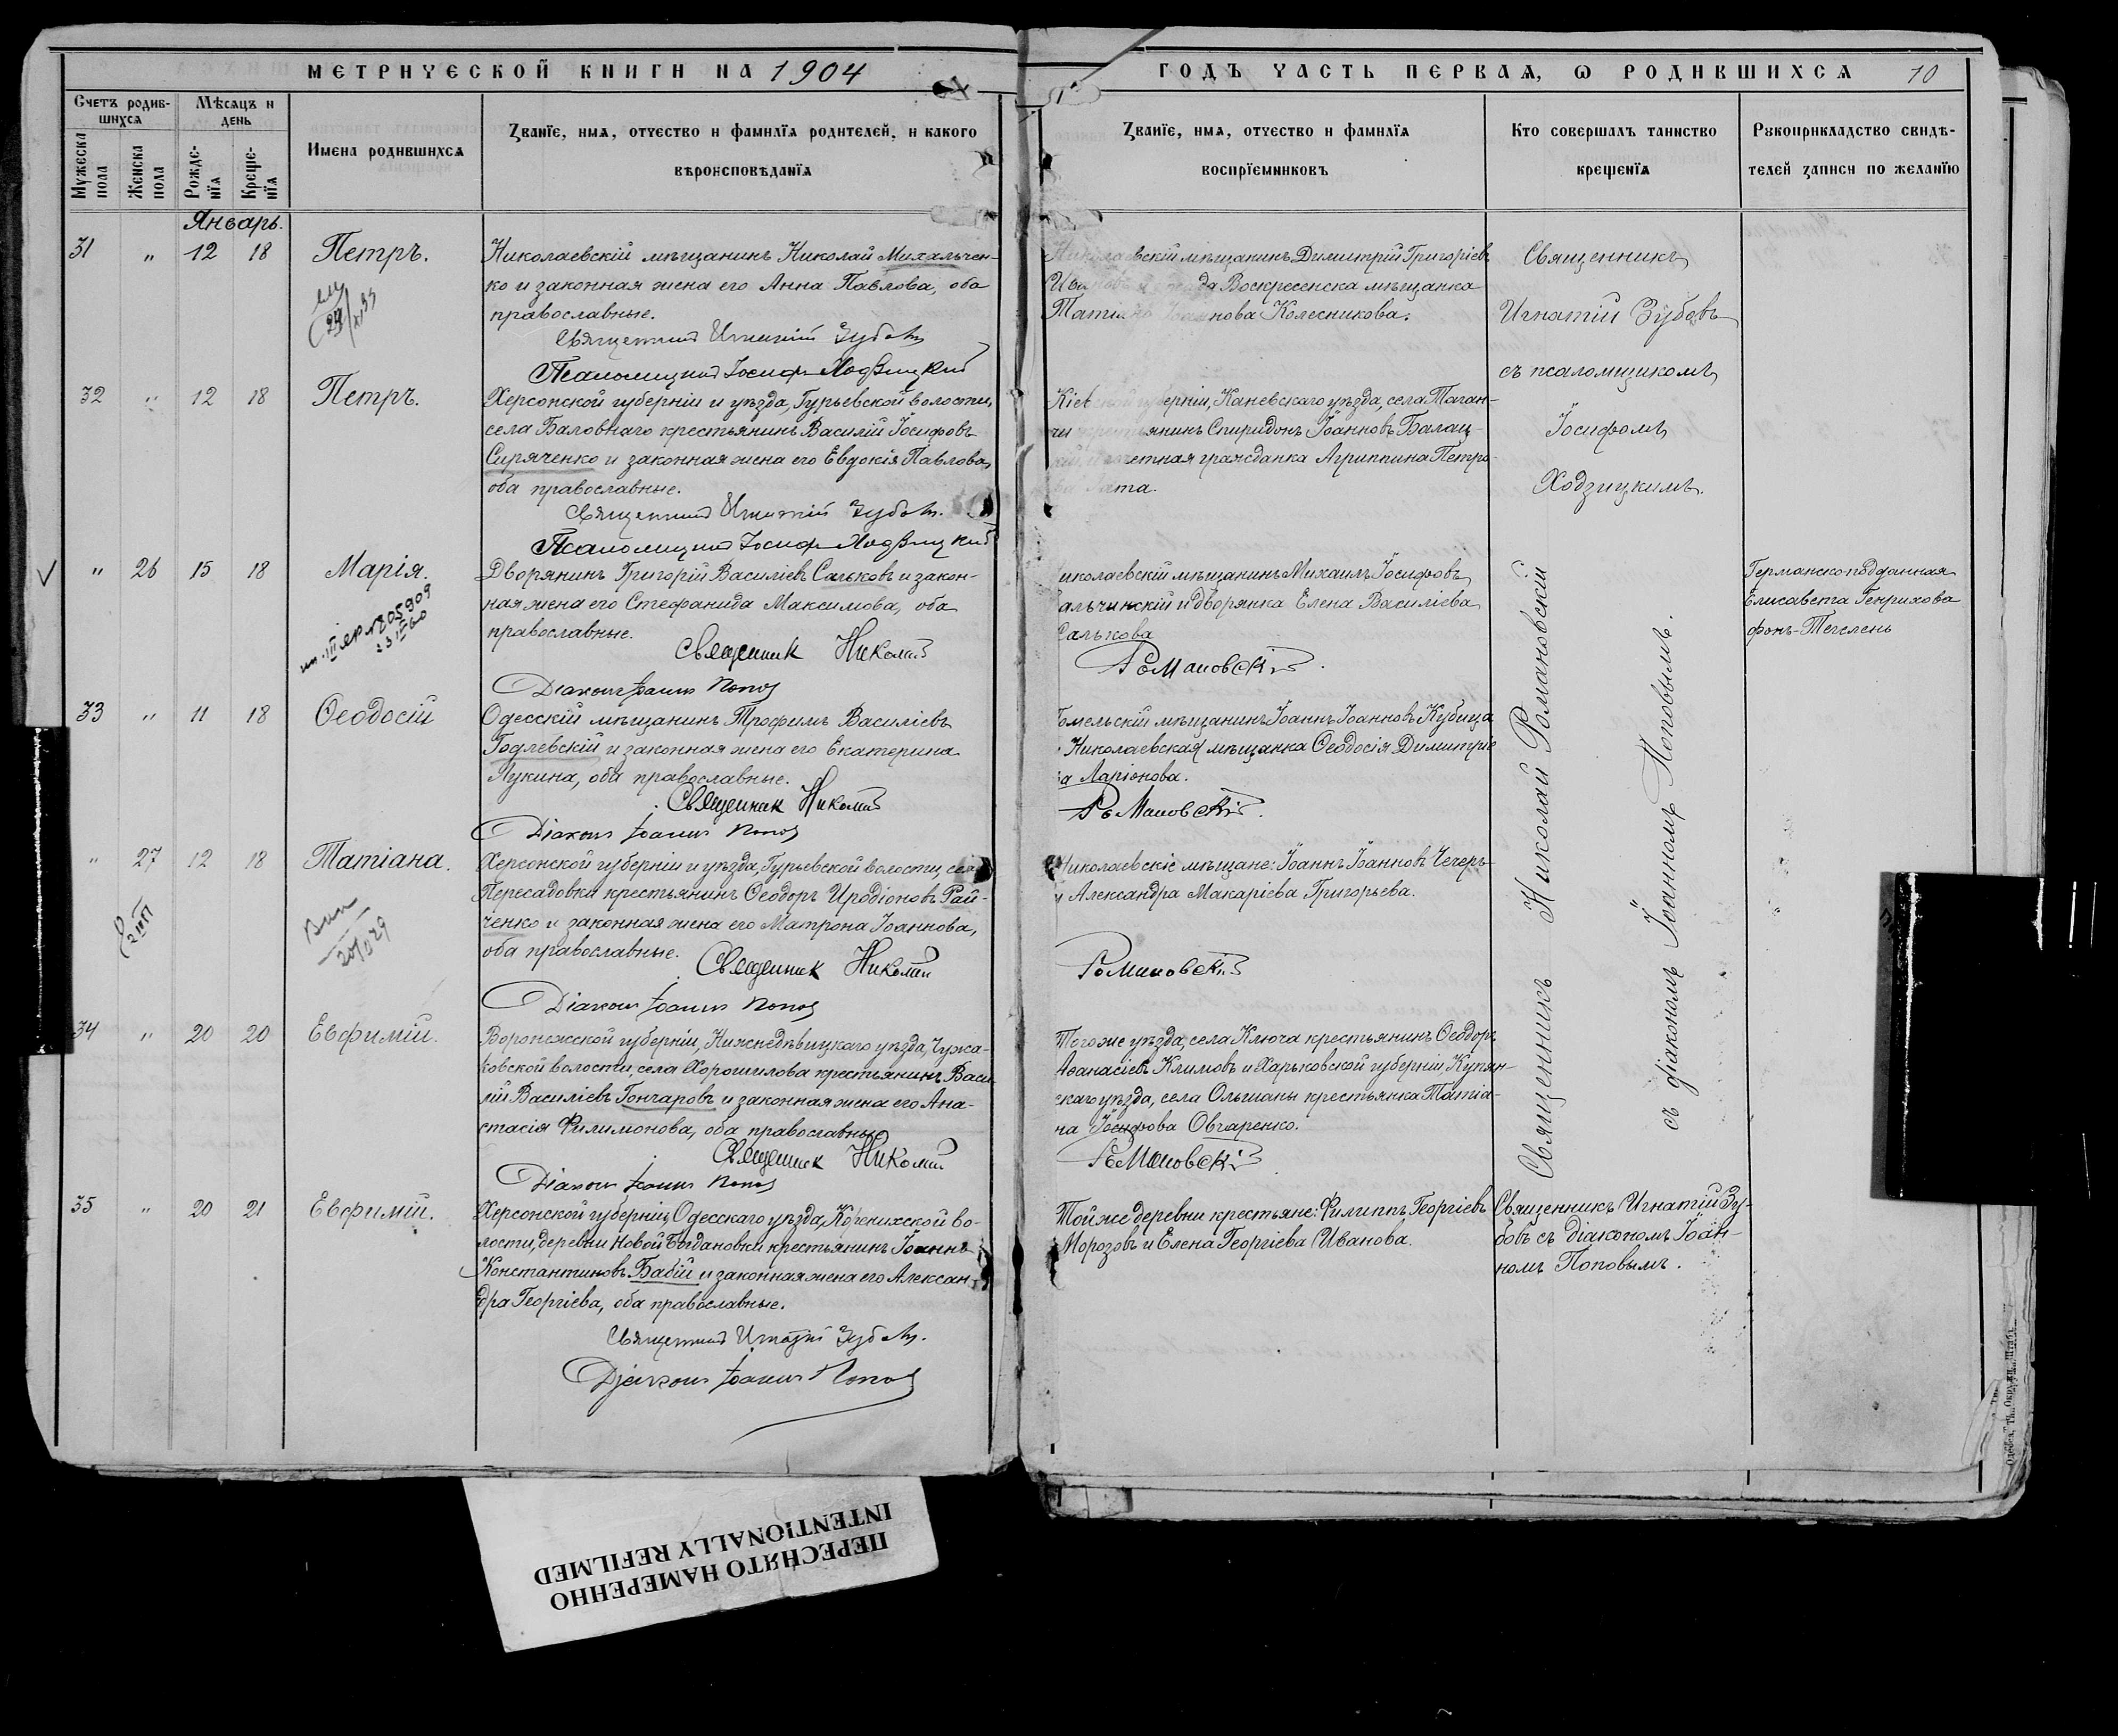 МЕТРИЧЕСКОЙ КНИГИ НА 1904
ГОДЪ ЧАСТЬ ПЕРВАЯ, Ѡ РОДИВШИХСЯ 10
Счетъ родив-
шихся
Мѣсяцъ и
день
Мужеска
пола
Женска
пола
Рожде-
нїя
Креще-
нїя
Имена родившихся
Званїе, имя, отчество и фамилїя родителей, и какого
вѣроисповѣданїя
Званїе, имя, отчество и фамилїя
воспрїемниковъ
Кто совершалъ таинство
крещенїя
Рукоприкладство свидѣ-
телей записи по желанїю
Январь.
31 " 12 18 Петръ.
Николаевскій мѣщанинъ Николай Михальчен-
ко и законная жена его Анна Павлова, оба
православные.
Священникъ Игнатій Зубовъ
Псаломщикъ Іосифъ Ходзицкій
Николаевскій мѣщанинъ Димитрій Григоріевъ
Воскресенска мѣщанка
Колесникова.
Священникъ
Игнатій Зубовъ
съ псаломщикомъ
Іосифомъ
Ходзицкимъ.
32 " 12 18 Петръ.
Херсонской губерніи и уѣзда, Гурьевской волости,
села Баловнаго крестьянинъ Василій Іосифовъ
Сиряченко и законная жена его Евдокія Павлова,
оба православные.
Священникъ Игнатій Зубовъ.
Псаломщикъ Іосифъ Ходзицкій
губерніи, Каневскаго уѣзда, села Таган-
Спиридонъ Іоанновъ Балац-
гражданка Агриппина Петро-
" 26 15 18 Марія.
Дворянинъ Григорій Василіевъ Сальковъ и закон-
ная жена его Стефанида Максимова, оба
православные.
Священникъ Николай
Романовскій.
Діаконъ Іоаннъ Поповъ
иколаевскій мѣщанинъ Михаилъ Іосифовъ
альчинскій и дворянка Елена Василіева
Салькова
Священникъ Николай Романовскій
съ діакономъ Іоанномъ Поповымъ.
Германскоподданная
Елисавета Генрихова
фонъ-Тегеленъ
33 " 11 18 Ѳеодосій
Одесскій мѣщанинъ Трофимъ Василіевъ
Годлевскій и законная жена его Екатерина
Лукина, оба православные.
Священникъ Николай
Романовскій.
Діаконъ Іоаннъ Поповъ
Гомельскій мѣщанинъ Іоаннъ Іоанновъ Кубица
Николаевская мѣщанка Ѳеодосія Димитріе
ва Ларіонова.
" 27 12 18 Татіана.
Херсонской губерніи и уѣзда, Гурьевской волости, села
Пересадовки крестьянинъ Ѳеодоръ Иродіоновъ Рай-
ченко и законная жена его Матрона Іоаннова,
оба православные.
Священникъ Николай
Романовскій
Діаконъ Іоаннъ Поповъ
Николаевскіе мѣщане: Іоаннъ Іоанновъ Чечеръ
и Александра Макаріева Григорьева.
34 " 20 20 Евфимій.
Воронежской губерніи, Нижнедѣвицкаго уѣзда, Чужа-
ковской волости, села Хорошилова крестьянинъ Васи-
лій Василіевъ Гончаровъ и законная жена его Ана-
стасія Филимонова, оба православные
Священникъ Николай
Романовскій
Діаконъ Іоаннъ Поповъ
Того же уѣзда, села Ключа крестьянинъ Ѳеодоръ
Аѳанасіевъ Климовъ и Харьковской губерніи Купян-
скаго уѣзда, села Ольшаны крестьянка Татіа-
на Іосифова Овчаренко.
35 " 20 21 Евфимій.
Херсонской губерніи, Одесскаго уѣзда, Коренихской во-
лости, деревни Новой Богдановки крестьянинъ Іоаннъ
Константиновъ Бабій и законная жена его Алексан-
дра Георгіева, оба православные.
Священникъ Игнатій Зубовъ.
Діаконъ Іоаннъ Поповъ
Той же деревни крестьяне: Филиппъ Георгіевъ
Морозовъ и Елена Георгіева Иванова.
Священникъ Игнатій Зу-
бовъ съ діакономъ Іоан-
номъ Поповымъ.
ПЕРЕСНЯТО НАМЕРЕННО
INTENTIONALLY REFILMED